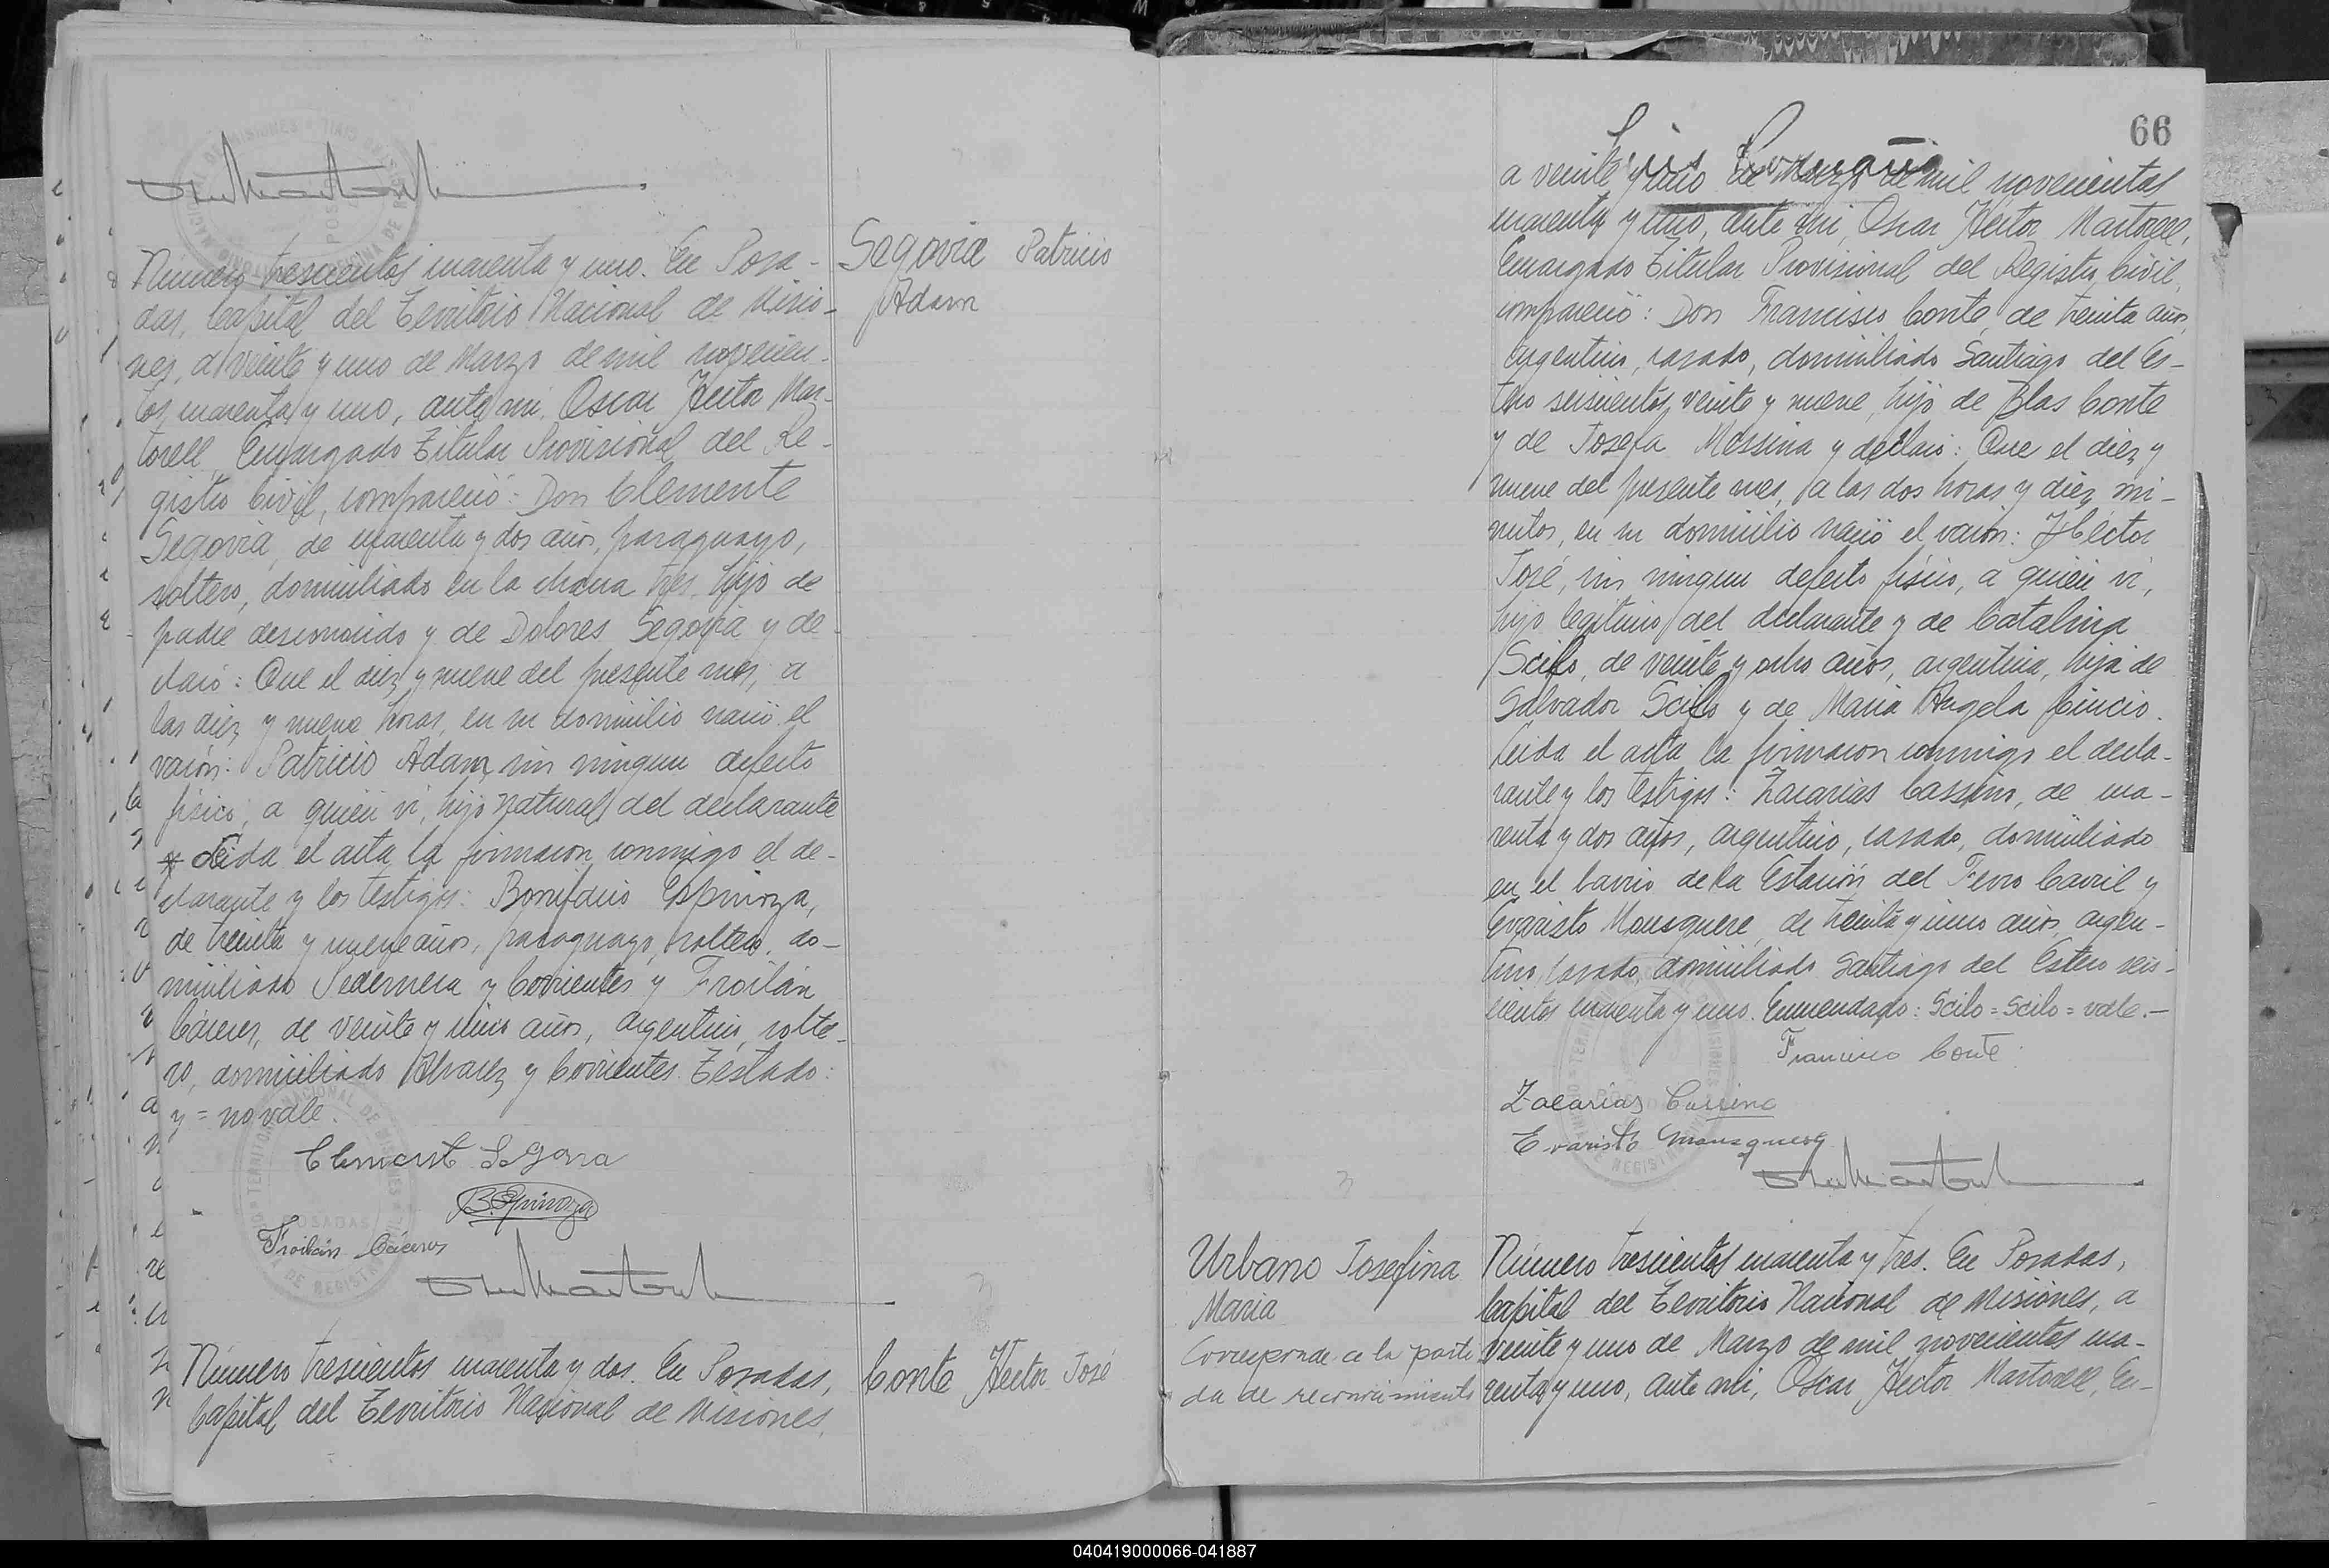 Número trescientos cuarenta y uno. En Posa-
das, Capital del Territorio Nacional de Misio-
nes, a veinte y uno de Marzo de mil novecien-
tos cuarenta y uno, ante mi, Oscar Hector Mar-
torell, Encargado Titular Provisional del Re-
gistro Civil, compareció: Don Clemente
Segovia, de cuarenta y dos años, paraguayo,
soltero, domiciliado en la chacra tres, hijo de
padre desconocido y de Dolores Segovia y de-
claró: Que el diez y nueve del presente mes, a
las diez y nueve horas, en su domicilio nació el
varón: Patricio Adam, sin ningun defecto
físico, a quién vi, hijo natural del declarante
Leida el acta la firmaron conmigo el de-
clarante y los testigos: Bonifacio Espinoza,
de treinta y nueve años, paraguayo, soltero, do-
miciliado Pedernera y Corrientes y Froilán
Cáceres, de veinte y cinco años, argentino, solte-
ro, domiciliado Alvarez y Corrientes. Testado:
y = no vale.
Segovia Patricio
Adam
Clement Segovia
B. Espinoza
Froilán Cáceres
Número trescientos cuarenta y dos. En Posadas,
Capital del Territorio Nacional de Misiones,
Conte Hector José
66
Luis
a veinte y uno de Marzo de mil novecientos
cuarenta y uno, ante mi, Oscar Héctor Martorell,
Encargado Titular Provisional del Registro Civil,
compareció: Don Francisco Conte, de treinta años,
argentino, casado, domiciliado Santiago del Es-
tero seiscientos veinte y nueve, hijo de Blas Conte
y de Josefa Messina y declaró: Que el diez y
nueve del presente mes, a las dos horas y diez mi-
nutos, en su domicilio nació el varón: Héctor
José, sin ningun defecto físico, a quién vi,
hijo legitimo del declarante y de Catalina
Scilo, de veinte y ocho años, argentina, hija de
Salvador Scilo y de Maria Angela Cincio.
Leida el acta la firmaron conmigo el decla-
rante y los testigos: Zacarias Cassino, de cua-
renta y dos años, argentino, casado, domiciliado
en el barrio de la Estación del Ferro Carril y
Evaristo Mousquere, de treinta y cinco años, argen-
tino, casado, domiciliado Santiago del Estero seis-
cientos cuarenta y uno. Enmendado: Scilo = Scilo = vale.—
Francisco Conte
Zacarías Cassino
Evaristo
Urbano Josefina
Maria
Corresponde a la parti
da de reconocimiento
Número trescientos cuarenta y tres. En Posadas,
Capital del Territorio Nacional de Misiones, a
veinte y uno de Marzo de mil novecientos cua-
renta y uno, ante mi, Oscar Hector Martorell, En-
040419000066-041887